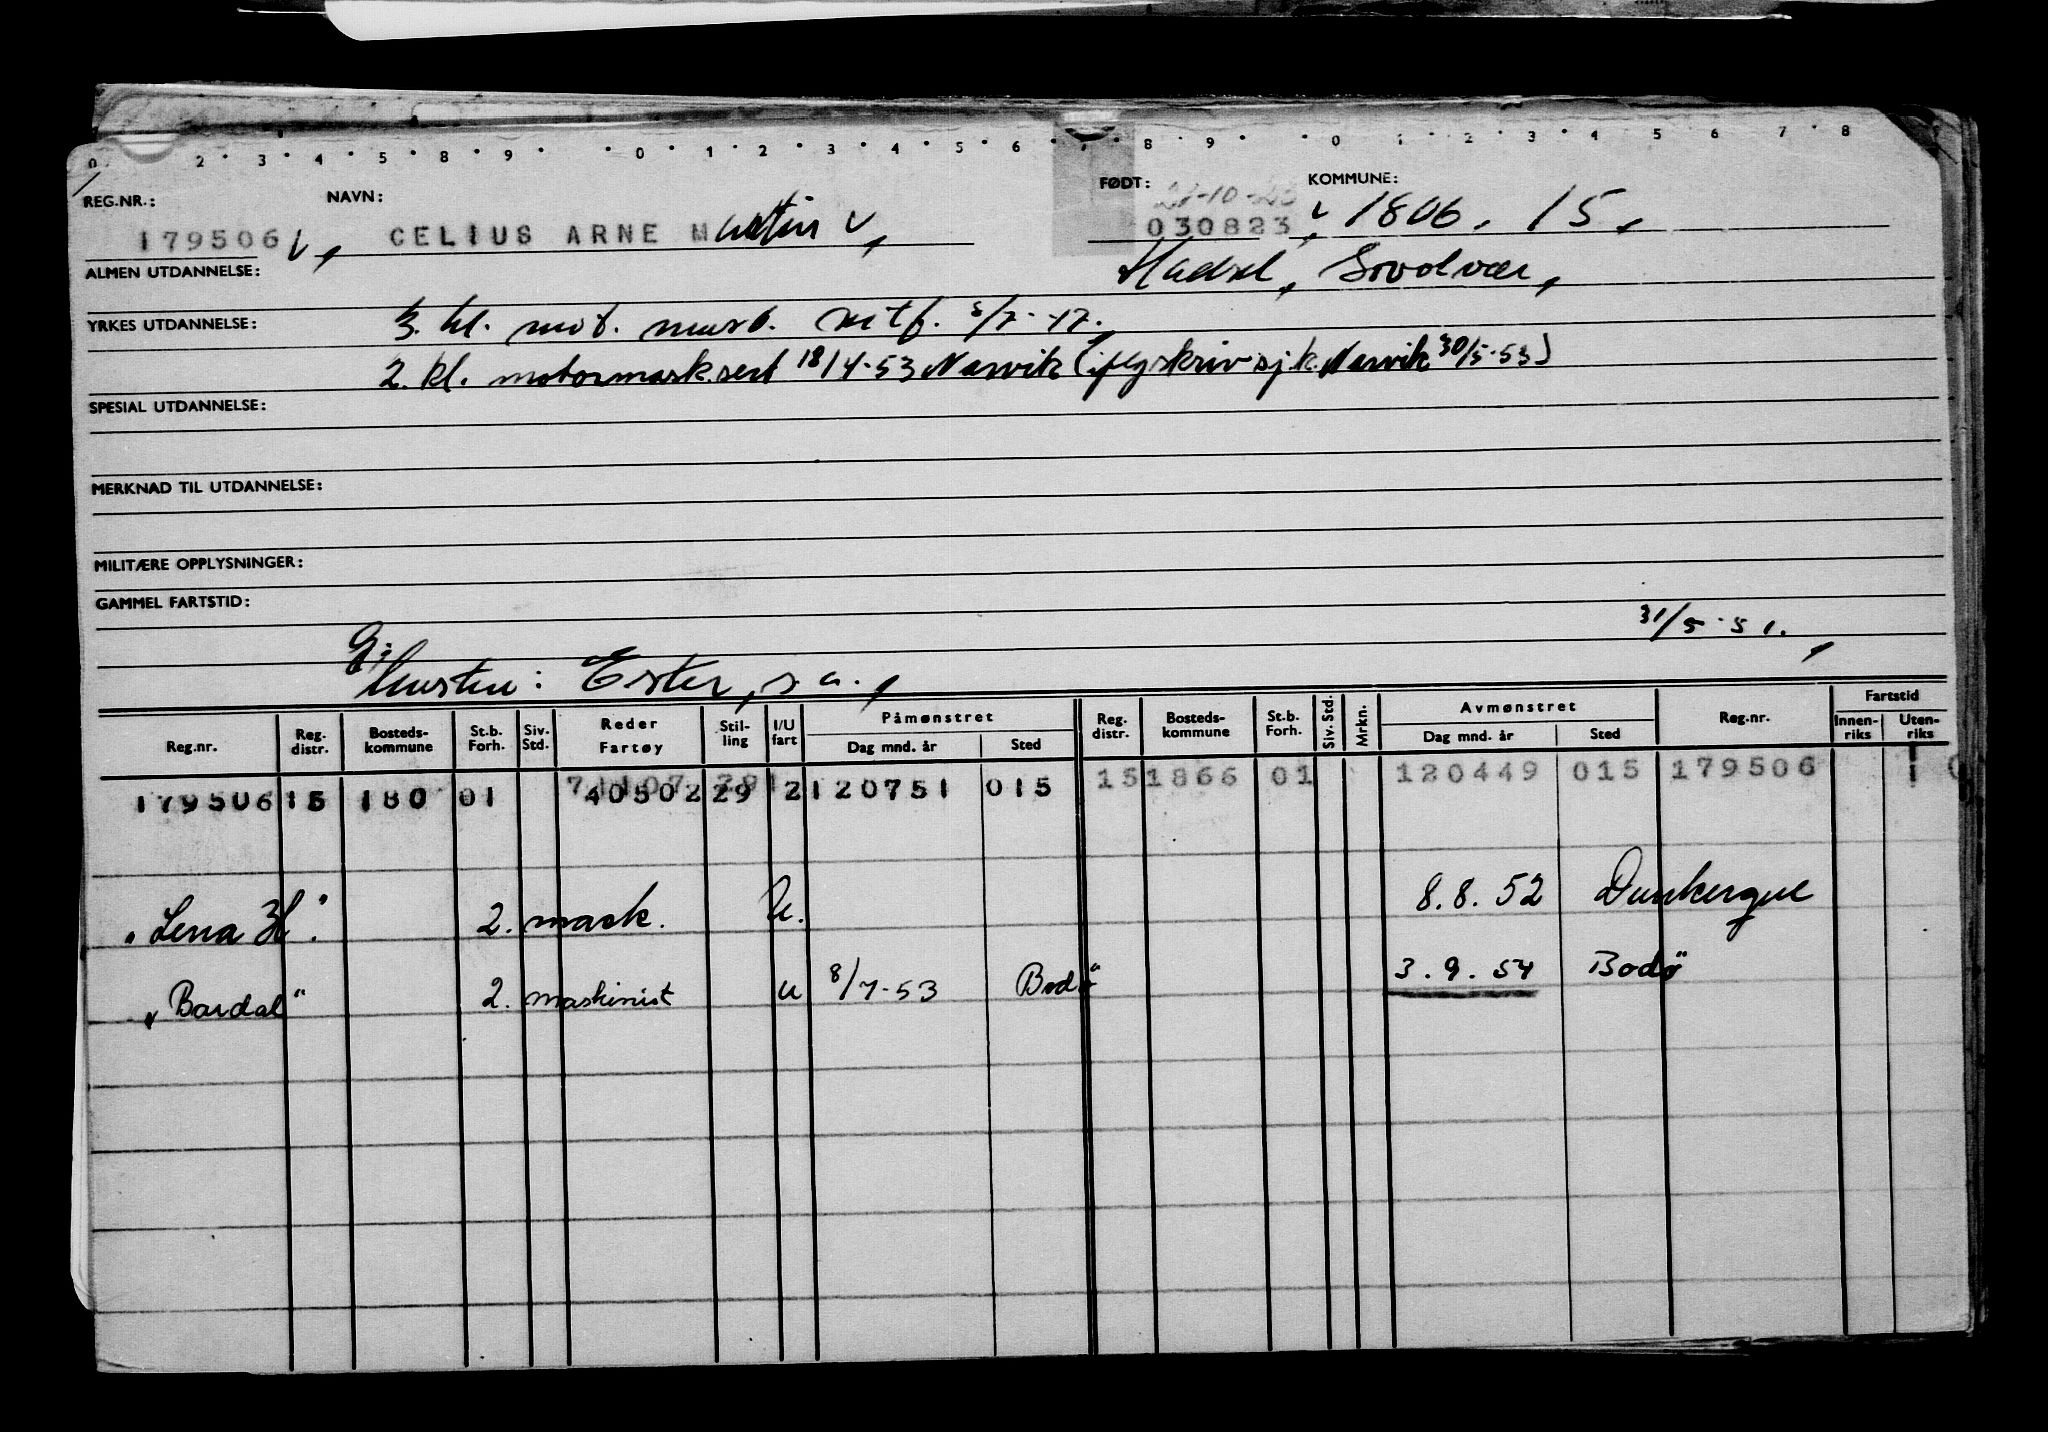 0 2 3 4 5 8 9 0 1 2 3 4 5 6 7 8 9 0 1 2 3 4 5 6 7 8
REG.NR.: NAVN: FØDT: KOMMUNE:
21-10-23
179506 CELIUS ARNE Martin 030823 1806. 15.
ALMEN UTDANNELSE: Hadsel, Svolvær,
YRKES UTDANNELSE: 3. kl. mot. mask. 5/7-47.
2. kl. motormask.sert 18/4-53 Narvik (iflg skriv sj.k. Narvik 30/5-53)
SPESIAL UTDANNELSE:
MERKNAD TIL UTDANNELSE:
MILITÆRE OPPLYSNINGER:
GAMMEL FARTSTID:
31/5-51.
Gi.
Hustru: Ester, s a.,
Reg.nr. Reg. distr. Bosteds-kommune St.b. Forh. Siv. Std. Reder Fartøy Stil-ling I/U fart Påmønstret Dag mnd. år Sted Reg. distr. Bosteds-kommune St.b. Forh. Siv. Std. Mrkn. Avmønstret Dag mnd. år Sted Reg.nr. Fartstid Innen-riks Uten-riks
151866 01 120449 015 179506 1 0
179506 15 180 01 40502 29 2 120751 015
"Lena H". 2. mask. U. 8.8.52 Dunkerque
"Bardal" 2. maskinist u 8/7-53 Bodø 3.9.54 Bodø